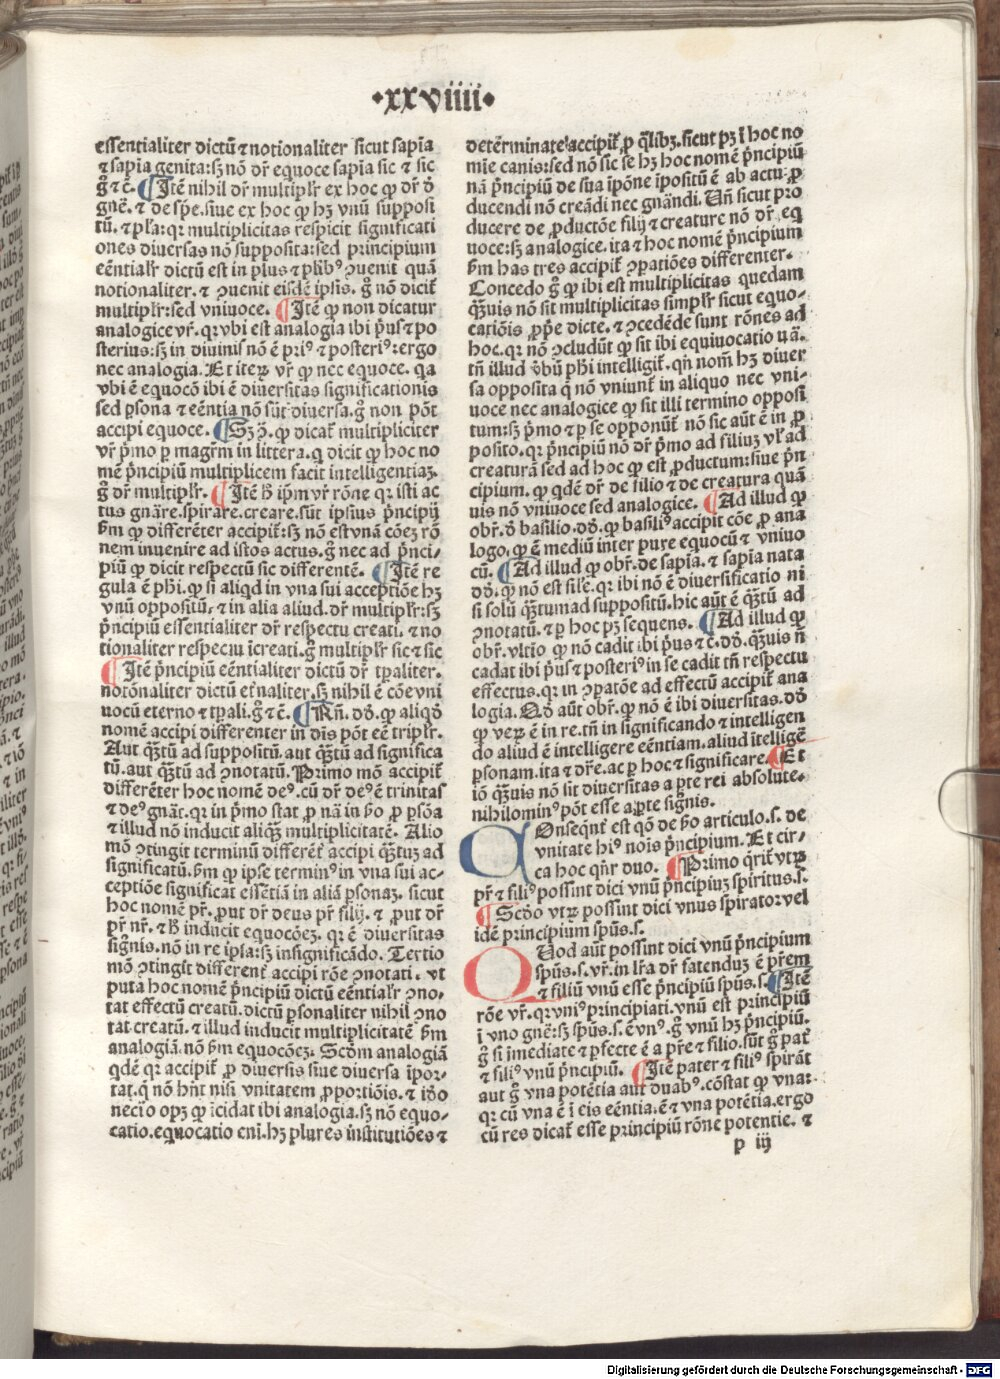 •xxviiii•
essentialiter dictū ⁊ notionaliter sicut sapīa
⁊ sapīa genita: sʒ nō dr̄ equoce sapīa sic ⁊ sic
g̊ ⁊ c̄. ¶ Itē nihil dr̄ multipl̄r ex hoc ꝙ dr̄ d̄
gn̄e. ⁊ de sp̄e. siue ex hoc ꝙ hʒ vnū supposi
tū. ⁊ pl̄a: qr multiplicitas respicit significati
ones diuersas nō supposita: sed principium
eēntial̄r dictū est in plus ⁊ plibꝰ ꝯuenit quā
notionaliter. ⁊ ꝯuenit eisdē ipsis. g̊ nō dicit̄
multipl̄r: sed vniuoce. ¶ Itē ꝙ non dicatur
analogice vr̄. qr vbi est analogia ibi p̄us ⁊ po
sterius: sʒ in diuinis nō ē priꝰ ⁊ posteriꝰ: ergo
nec analogia. Et iteꝝ vr̄ ꝙ nec equoce. qa
vbi ē equocō ibi ē diuersitas significationis
sed ꝑsona ⁊ eēntia nō sūt diuersa. g̊ non pōt
accipi equoce. ¶ Sʒ ꝯ̄. ꝙ dicat̄ multipliciter
vr̄ p̄mo ꝑ magr̄m in littera. q dicit ꝙ hoc no
mē p̄ncipiū multiplicem facit intelligentiaʒ.
g̊ dr̄ multipl̄r. ¶ Itē h̄ ip̄m vr̄ rōne qr isti ac
tus gnāre. spirare. creare. sūt ipsius p̄ncipij
ẜm ꝙ differēter accipit̄: sʒ nō est vnā cōeʒ rō
nem inuenire ad istos actus. g̊ nec ad p̄nci-
piū ꝙ dicit respectū sic differentē. ¶ Itē re
gula ē ph̄i. ꝙ si aliqd in vna sui acceptiōe hʒ
vnū oppositū. ⁊ in alia aliud. dr̄ multipl̄r: sʒ
p̄ncipiū essentialiter dr̄ respectu creati. ⁊ no
tionaliter respectu īcreati. g̊ multipl̄r sic ⁊ sic
¶ Itē p̄ncipiū eēntialiter dictū dr̄ tp̄aliter.
notōnaliter dictū et̄naliter. sʒ nihil ē cōe vni
uocū eterno ⁊ tp̄ali. g̊ ⁊ c̄. ¶ Rn̄. dd̄. ꝙ aliqd̄
nomē accipi differenter in dīs pōt eē tripl̄r.
Aut q̄ʒtū ad suppositū. aut q̄ʒtū ad significa
tū. aut q̄ʒtū ad ꝯnotatū. Primo mō accipit̄
differēter hoc nomē deꝰ. cū dr̄ deꝰ ē trinitas
⁊ deꝰ gnāt. qr in p̄mo stat ꝓ nā in ẜo ꝓ ꝑsōa
⁊ illud nō inducit aliq̄ʒ multiplicitatē. Alio
mō ꝯtingit terminū differēt̄ accipi q̄ʒtuʒ ad
significatū. ẜm ꝙ ipse terminꝰ in vna sui ac-
ceptiōe significat essētiā in aliā ꝑsonaʒ. sicut
hoc nomē pr̄. ꝓut dr̄ deus pr̄ filij. ⁊ ꝓut dr̄
pr̄ nr̄. ⁊ h̄ inducit equocōeʒ. qr ē diuersitas
signis. nō in re ipsa: sʒ insignificādo. Tertio
mō ꝯtingit different̄ accipi rōe ꝯnotati. vt
puta hoc nomē p̄ncipiū dictū eēntial̄r ꝯno-
tat effectū creatū. dictū ꝑsonaliter nihil ꝯno
tat creatū. ⁊ illud inducit multiplicitatē ẜm
analogiā. nō ẜm equocōeʒ. Scd̄m analogiā
qdē qr accipit̄ ꝓ diuersis siue diuersa īpor-
tat. q̄ nō hn̄t nisi vnitatem ꝓportiōis. ⁊ iō̄
necīo opʒ ꝙ īcidat ibi analogia. sʒ nō equo-
catio. equocatio eni. hʒ plures institutiōes ⁊
determinate accipit̄ ꝓ q̄libʒ. sicut pʒ ī hoc no
mīe canis: sed nō sic se hʒ hoc nomē p̄ncipiū
nā p̄ncipiū de sua īpōne īpositū ē ab actu ꝓ
ducendi nō creādi nec gnāndi. Vn̄ sicut pro
ducere de ꝓductōe filij ⁊ creature nō dr̄ eq
uoce: sʒ analogice. ita ⁊ hoc nomē p̄ncipium
ẜm has tres accipit̄ ꝯpatiōes differenter.
Concedo g̊ ꝙ ibi est multiplicitas quedam
q̄ʒuis nō sit multiplicitas simpl̄r sicut equo-
catiōis ꝓp̄e dicte. ⁊ ꝯcedēde sunt rōnes ad
hoc. qr nō ꝯcludūt ꝙ sit ibi equiuocatio uā.
tn̄ illud v̄bū ph̄i intelligit̄. qn̄ nom̄ hʒ diuer
sa opposita q̄ nō vniunt̄ in aliquo nec vni-
uoce nec analogice ꝙ sit illi termino opposi
tum: sʒ p̄mo ⁊ ꝑ se opponūt̄ nō sic aūt ē in ꝓ
posito. qr p̄ncipiū nō dr̄ p̄mo ad filiuʒ vl̄ ad
creaturā sed ad hoc ꝙ est ꝓductum: siue p̄n
cipium. ꝙ qdē dr̄ de filio ⁊ de creatura quā
uis nō vniuoce sed analogice. ¶ Ad illud ꝙ
obr̄. d̄ basilio. dd̄. ꝙ basiliꝰ accipit cōe ꝓ ana
logo. ꝙ ē mediū inter pure equocū ⁊ vniuo
cū. ¶ Ad illud ꝙ obr̄. de sapīa. ⁊ sapīa nata
dd̄. ꝙ nō est sil̄e. qr ibi nō ē diuersificatio ni
si solū q̄ʒtum ad suppositū. hic aūt ē q̄ʒtū ad
ꝯnotatū. ⁊ ꝑ hoc pʒ sequens. ¶ Ad illud ꝙ
obr̄. vltīo ꝙ nō cadit ibi p̄us ⁊ c̄. dd̄. q̄ʒuis n̄
cadat ibi p̄us ⁊ posteriꝰ in se cadit tn̄ respectu
effectus. qr in ꝯpatōe ad effectū accipit̄ ana
logia. Qd̄ aūt obr̄. ꝙ nō ē ibi diuersitas. dd̄
ꝙ veꝝ ē in re. tn̄ in significando ⁊ intelligen
do aliud ē intelligere eēntiam. aliud ītelligē
ꝑsonam. ita ⁊ dr̄e. ac ꝑ hoc ⁊ significare. ¶ Et
iō q̄ʒuis nō sit diuersitas a ꝑte rei absolute.
nihilominꝰ pōt esse a ꝑte signis.
COnseqnt̄ est qō de ẜo articulo. s. de
vnitate hiꝰ nois p̄ncipium. Et cir-
ca hoc qn̄r duo. ¶ Primo q̄rit̄ vtꝝ
pr̄ ⁊ filiꝰ possint dici vnū p̄ncipiuʒ spiritus. s.
¶ Scd̄o vtꝝ possint dici vnus spirator vel
idē principium spūs. s.
QVod aūt possint dici vnū p̄ncipium
spūs. s. vr̄. in l̄ra dr̄ fatenduʒ ē pr̄em
⁊ filiū vnū esse p̄ncipiū spūs. s. ¶ Itē
rōe vr̄. qr vniꝰ principiati. vnū est principiū
ī vno gn̄e: sʒ spūs. s. ē vnꝰ. g̊ vnū hʒ p̄ncipiū.
g̊ si īmediate ⁊ ꝑfecte ē a pr̄e ⁊ filio. sūt g̊ pat̄
⁊ filiꝰ vnū p̄ncipiū. ¶ Itē pater ⁊ filiꝰ spirāt
aut g̊ vna potētia aut duabꝰ. cōstat ꝙ vna:
qr cū vna ē ī eis eēntia. ē ⁊ vna potētia. ergo
cū res dicat̄ esse principiū rōne potentie. ⁊
p iij
Digitalisierung gefördert durch die Deutsche Forschungsgemeinschaft - DFG